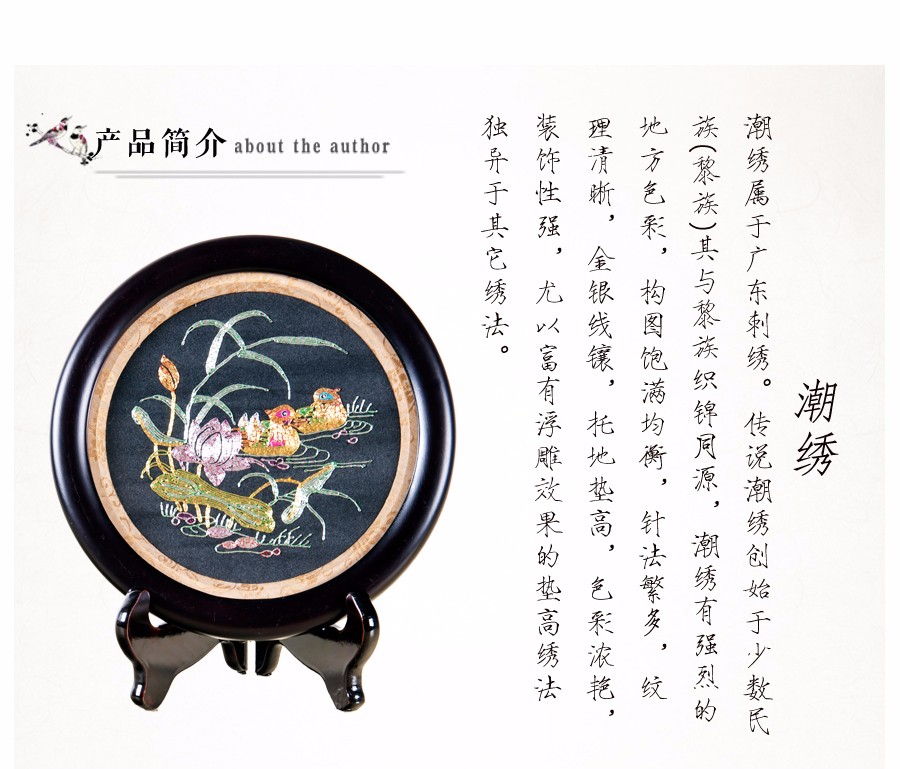 产品简介 about the author
潮绣
潮绣属于广东刺绣。传说潮绣创始于少数民
族(黎族)其与黎族织锦同源，潮绣有强烈的
地方色彩，构图饱满均衡，针法繁多，纹
理清晰，金银线镶，托地垫高，色彩浓艳，
装饰性强，尤以富有浮雕效果的垫高绣法
独异于其它绣法。